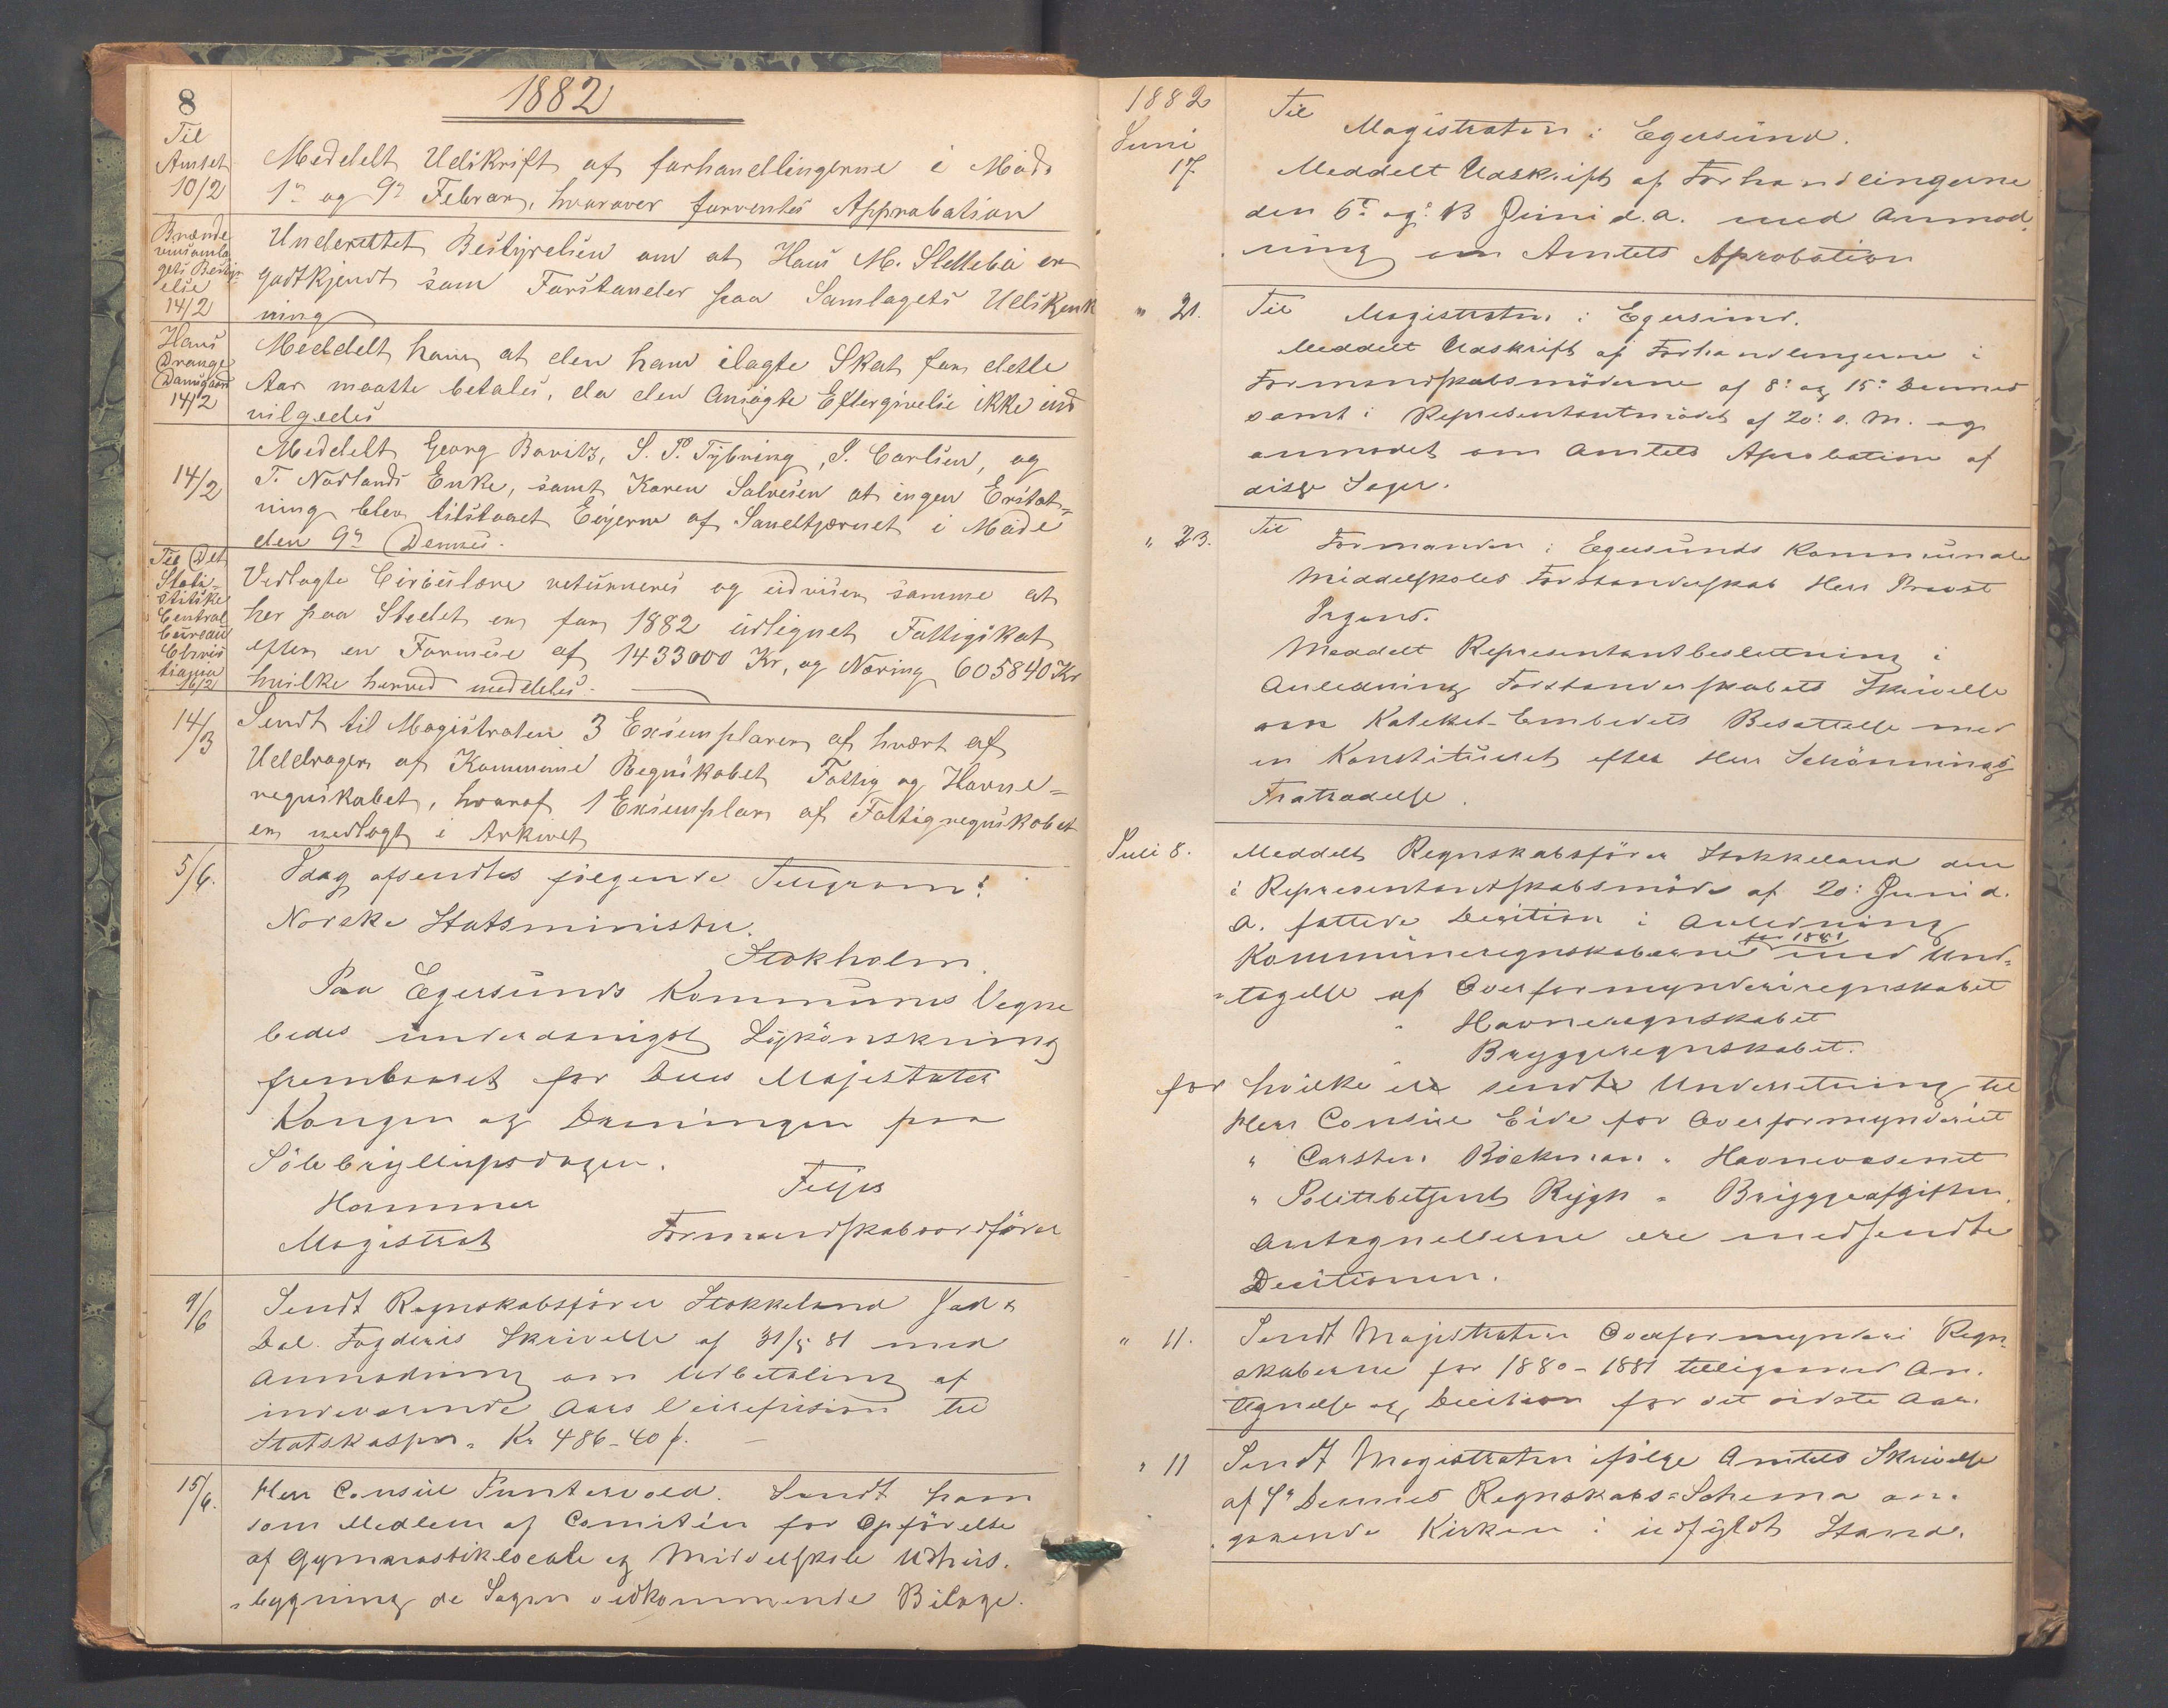 8
1882
Til
Amtet
10/2
Meddelt Udskrift af forhandlingerne i Møde
1ste og 9de Februar, hvorover forventes Approbation
Brænde
vinsamla
gets Besty
else
14/2
Underrettet Bestyrelsen om at Hans M. Slettebø er
godtkjendt som Forstander paa Samlagets Udskjænk
ning
Hans
Drange
Damsgaard
14/2
Meddelt ham at den ham ilagte Skat for dette
Aar maatte betales, da den ansøgte Eftergivelse ikke ind
vilgedes
14/2
Meddelt Georg Bovitz, S. P. Tybring, J. Carlsen, og
T. Nodlands Enke, samt Karen Salvesen at ingen Erstat-
ning blev tilstaaet Eierne af Sandtjernet i Møde
den 9de Dennes.
Til Det
Stati-
stiske
Central
bureau
Chris
tiania
16/2
Vedlagte Cirkulære returneres og udviser samme at
her paa Stedet er for 1882 udlignet Fattigskat
efter en Formue af 1433000 Kr, og Næring 605840 Kr
hvilke herved meddeles.
14/3
Sendt til Magistraten 3 Exsemplarer af hvert af
Uddrager af Kommune Regnskabet Fattig og Havne-
regnskabet, hvoraf 1 Exsemplar af Fattigregnskabet
er nedlagt i Arkivet
5/6.
Idag afsendtes følgende Telegram:
Norske Statsminister.
Stokholm.
Paa Egersunds Kommunes Vegne
bedes underdanigst Lykønskning
frembaaret for Deres Majestæter
Kongen og Dronningen paa
Sølvbryllupsdagen.
Hammer
Feyer
Magistrat
Formandskabsordfører
9/6
Sendt Regnskabsfører Stokkeland Jad &
Dal. Fogderis Skrivelse af 31/5 81 med
Anmodning om Udbetaling af
indeværende Aars Veirefusion til
Statskassen. Kr 486-40 ø. —
15/6.
Herr Consul Puntervold. Sendt ham
som Medlem af Comitéen for Opførelse
af Gymnastiklocale og Middelskole Udhus-
bygning de Sagen vedkommende Bilage.
1882
Juni
17.
Til
Magistraten i Egersund.
Meddelt Udskrift af Forhandlingerne
den 6te og 13 Juni d.a. med Anmod-
ning om Amtets Aprobation
" 21.
Til Magistraten i Egersund.
Meddelt Udskrift af Forhandlingerne i
Formandskabsmøderne af 8: og 15: Dennes
samt i Representantmødet af 20: s. M. og
anmodet om Amtets Aprobation af
disse Sager.
" 23.
Til
Formanden i Egersunds Kommunale
Middelskoles Forstanderskab Herr Provst
Irgens.
Meddelt Representantbeslutning i
Anledning Forstanderskabets Skrivelse
om Kateket-Embedets Besættelse med
en Konstitueret efter Herr Schønnings
Fratrædelse.
Juli 8.
Meddelt Regnskabsfører Stokkeland den
i Representantskabsmøde af 20: Juni d.
A. fattede Decition i Anledning
Kommuneregnskaberne for 1881 med Und-
tagelse af Overformynderiregnskabet
" Havneregnskabet
" Bryggeregnskabet.
for hvilke ere sendte Underretning til
Herr Consul Eide for Overformynderiet
" Carsten Bøckman " Havnevæsenet
" Politibetjent Rygh " Bryggeafgiften.
Antegnelserne ere medsendte
Decitionen.
" 11.
Sendt Magistraten Overformynderi Regn-
skaberne for 1880-1881 tilligemed An-
tegnelse og Decition for det sidste Aar.
" 11
Sendt Magistraten ifølge Amtets Skrivelse
af 4de Dennes Regnskabs-Schema an-
gaaende Kirken i udfyldt Stand.